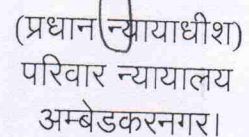 (प्रधान न्यायाधीश)
परिवार न्यायालय
अम्बेडकरनगर।